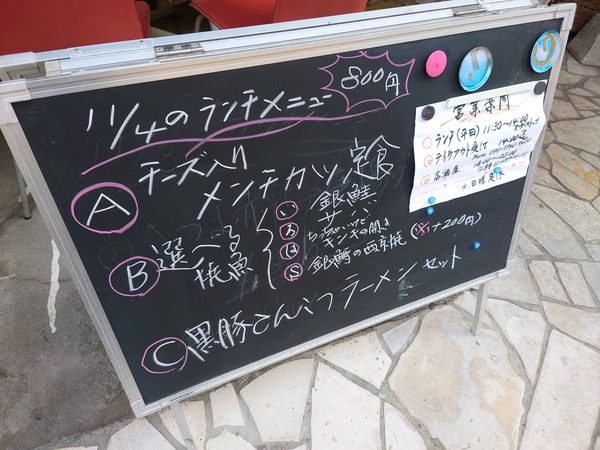 11/4のランチメニュー
800円
A チーズ入り
メンチカツ定食
B 選べる
焼魚
い 銀鮭
ろ サバ
は ちっちゃいけど
キンキの開き
S 銀鱈の西京焼(+200円)
C 黒豚とんこつラーメンセット
営業案内
ランチ(平日) 11:30〜14:00
テイクアウト受付
居酒屋